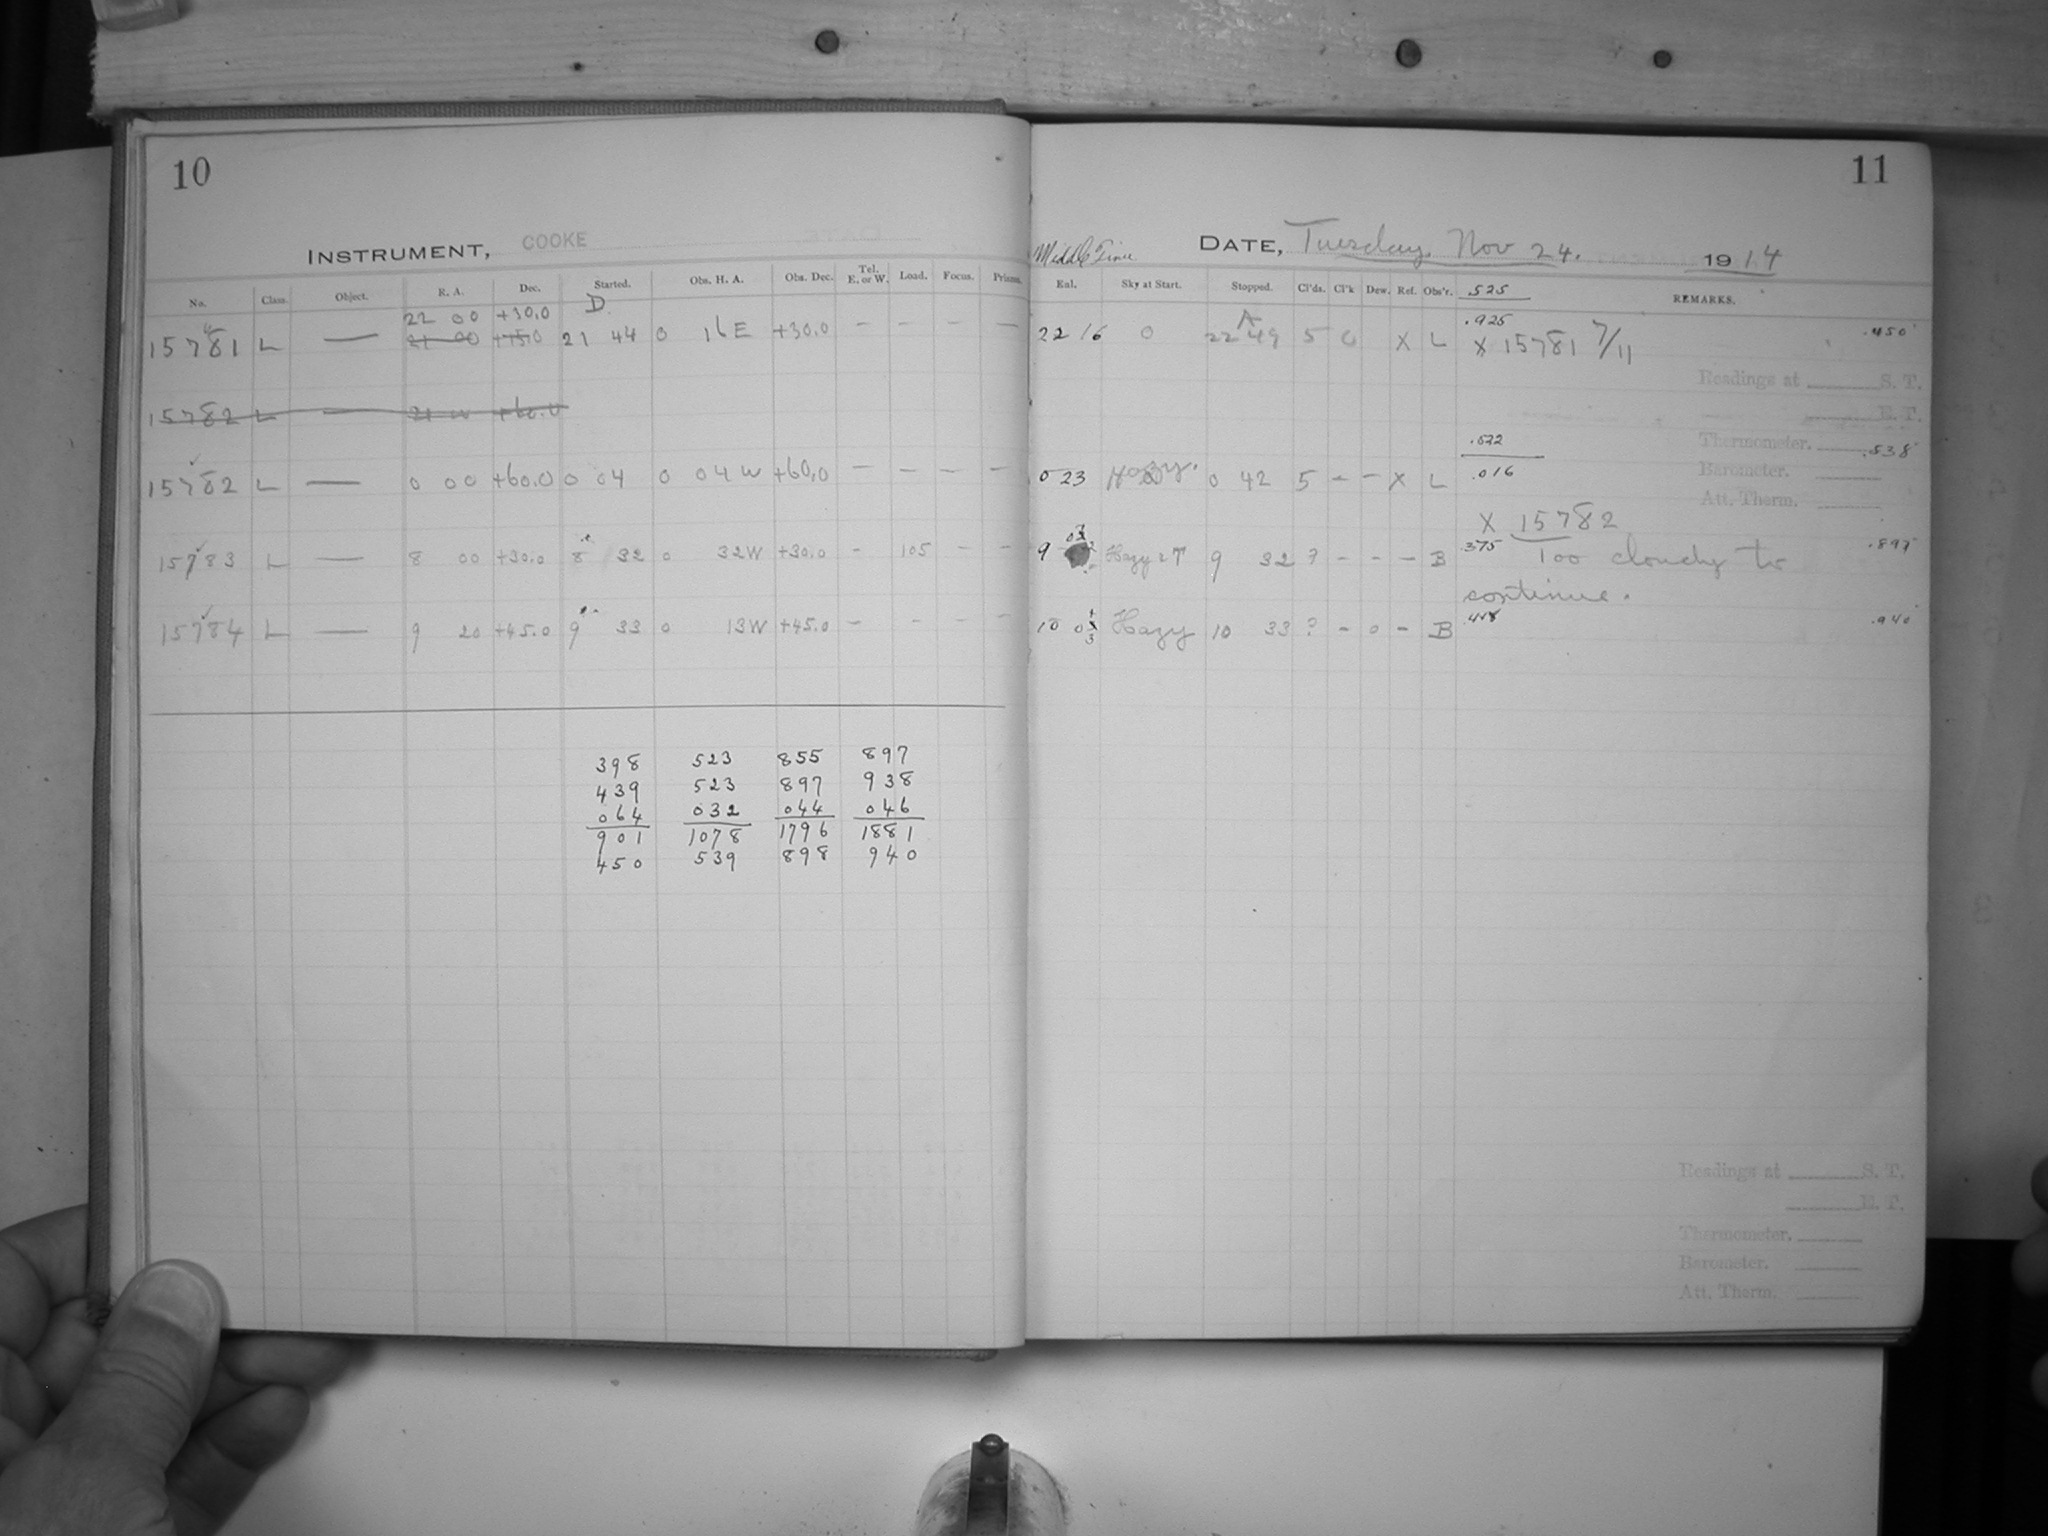 10
INSTRUMENT, COOKE
No. Class. Object. R. A. Dec. Started. Obs. H. A. Obs. Dec. Tel. E. or W. Load. Focus. Prisms.
D
22 00 +30.0
15781 L — 21 00 +75.0 21 44 0 16 E +30.0 — — — —
15782 L — 21 00 +60.0
15782 L — 0 00 +60.0 0 04 0 04 W +60.0 — — — —
15783 L — 8 00 +30.0 8 32 0 32 W +30.0 - 105 - -
15784 L — 9 20 +45.0 9 33 0 13 W +45.0 - - - -
398 523 855 897
439 523 897 938
064 032 044 046
901 1078 1796 1881
450 539 898 940
11
Middle Time
DATE, Tuesday Nov 24. 1914
Eal. Sky at Start. Stopped. Cl'ds. Cl'k Dew. Ref. Obs'r. REMARKS.
.525
A
.925
22 16 0 22 49 5 0 X L X 15781 7/11 .450
Readings at S. T.
E. T.
.522
Thermometer. .538
0 23 Hazy. 0 42 5 - - X L .016
Barometer.
Att. Therm.
X 15782
9 Hazy 9 32 ? - - - B .375 Too cloudy to .897
continue.
10 Hazy 10 33 ? - 0 - B .418 .940
Readings at S. T.
E. T.
Thermometer.
Barometer.
Att. Therm.